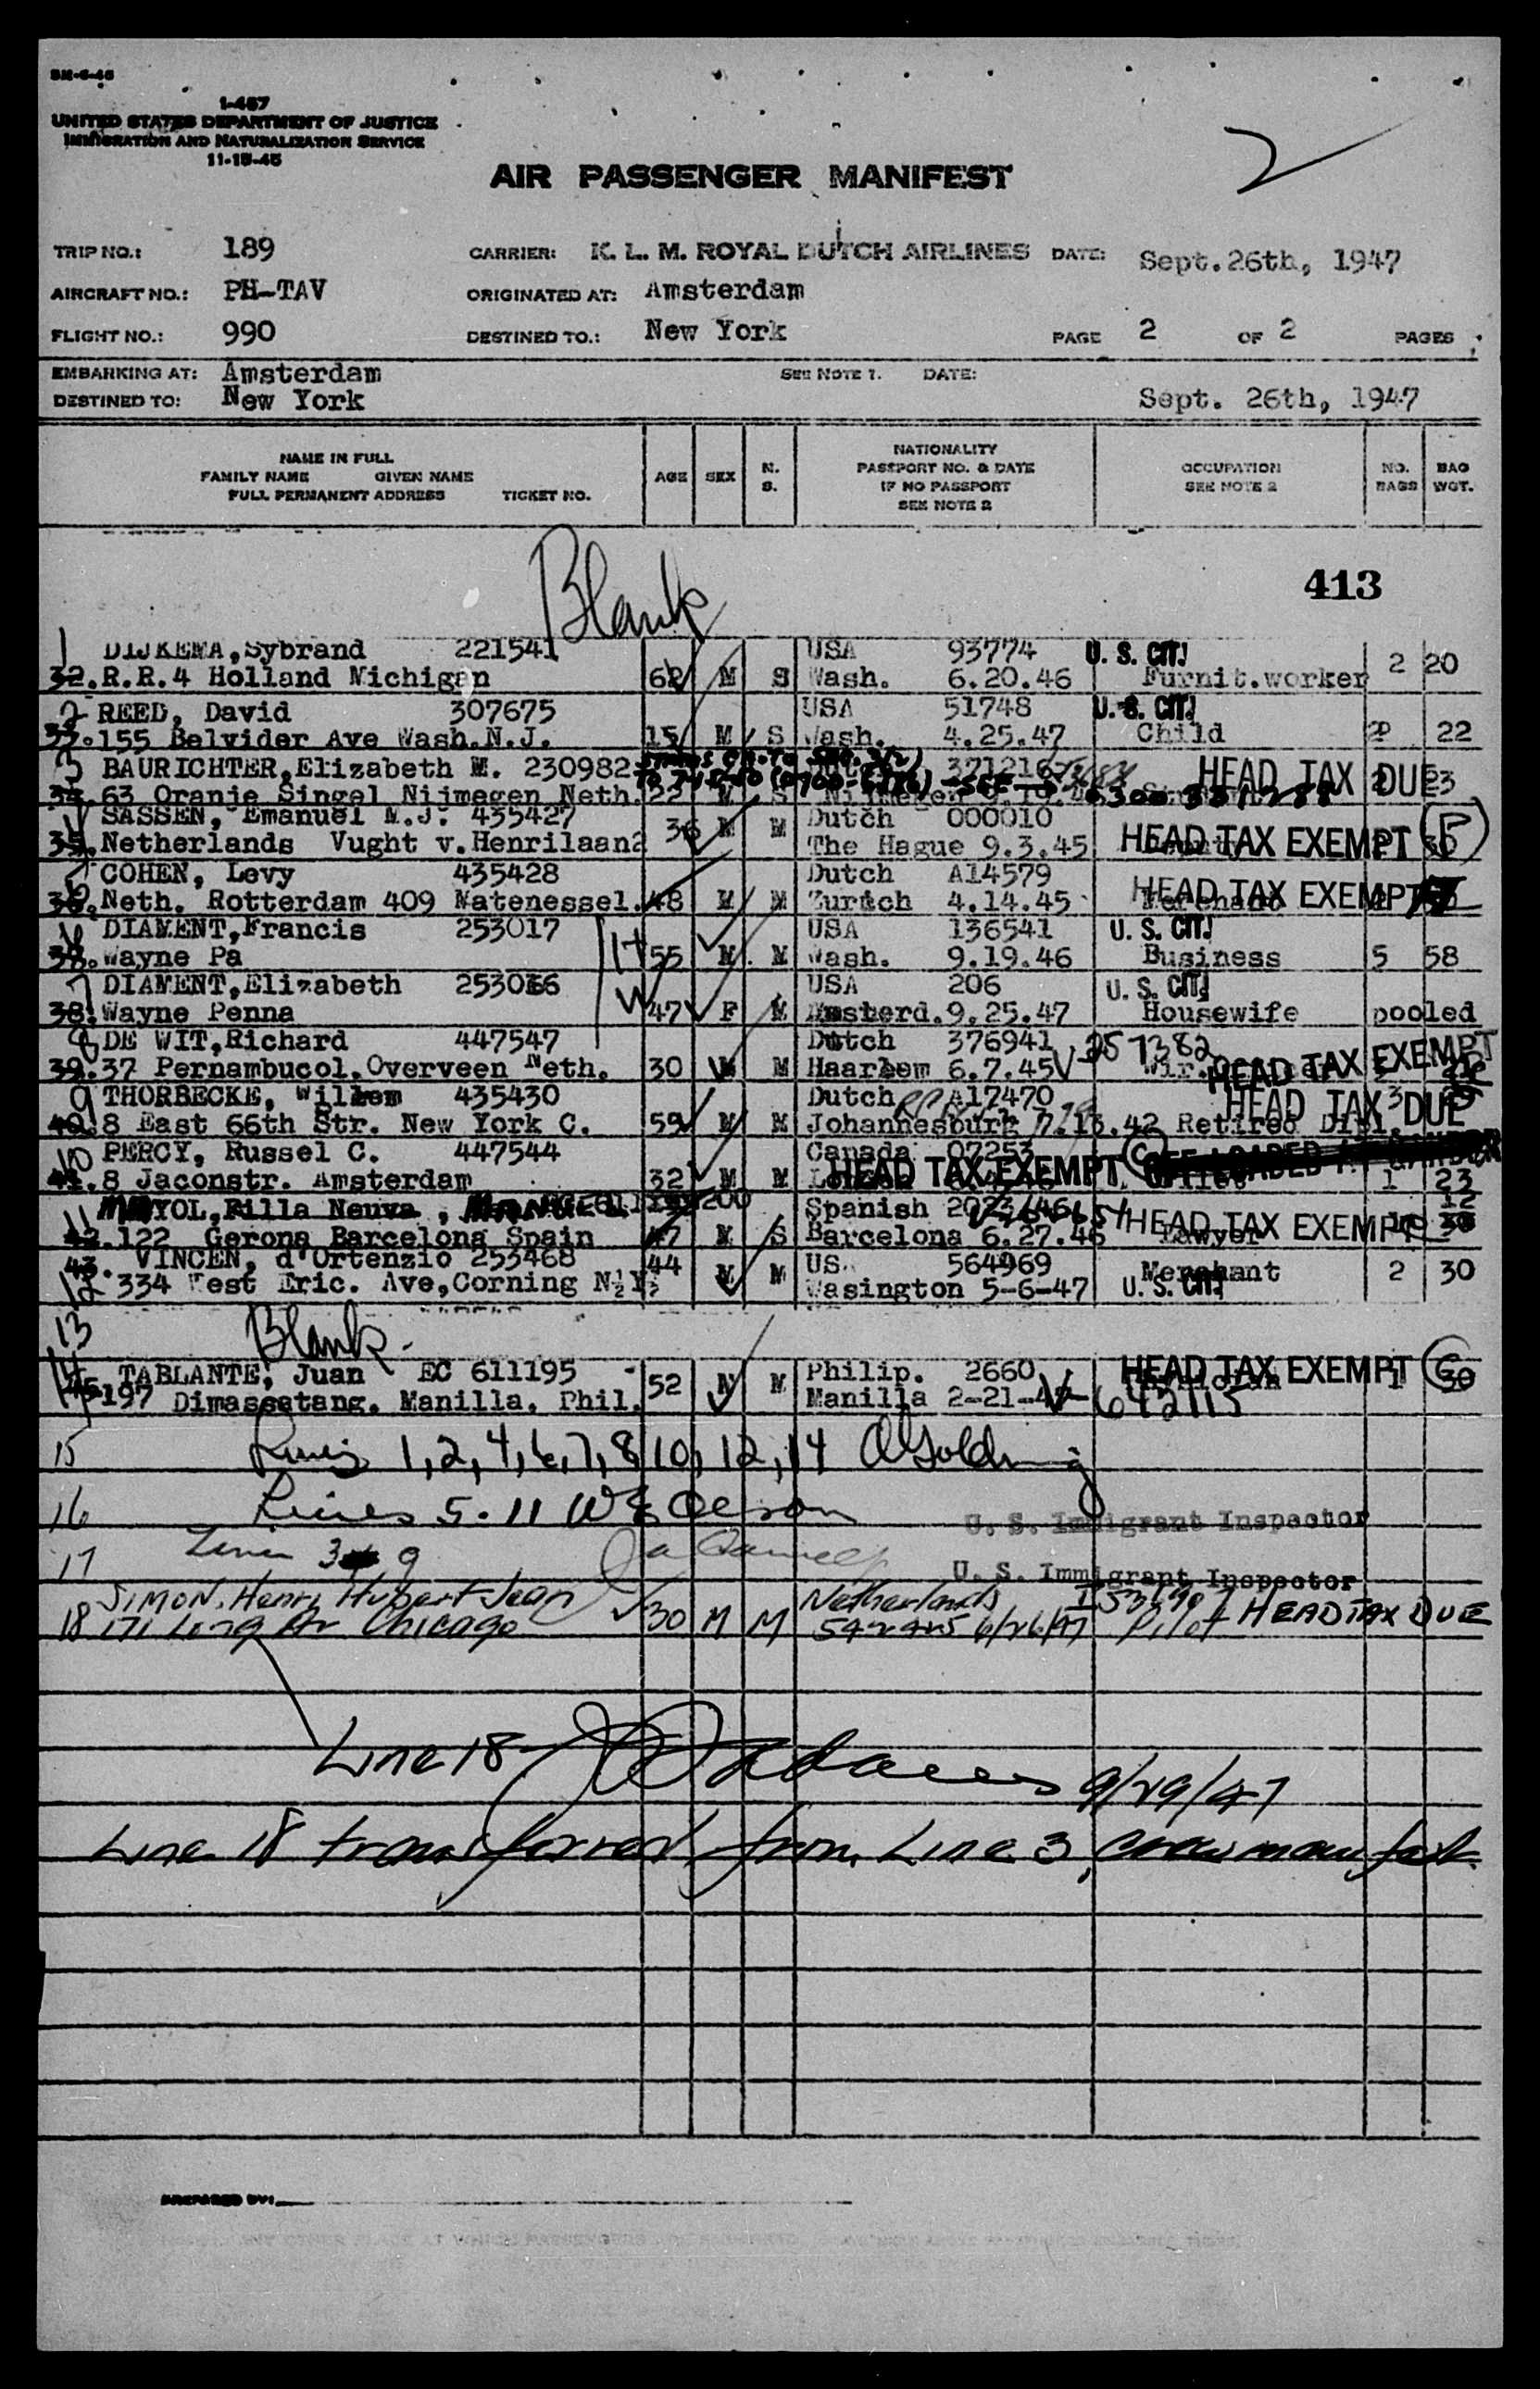 BM-6-46
1-467
UNITED STATES DEPARTMENT OF JUSTICE
IMMIGRATION AND NATURALIZATION SERVICE
11-15-45
2
AIR PASSENGER MANIFEST
TRIP NO.: 189 CARRIER: K. L. M. ROYAL DUTCH AIRLINES DATE: Sept.26th, 1947
AIRCRAFT NO.: PH-TAV ORIGINATED AT: Amsterdam
FLIGHT NO.: 990 DESTINED TO.: New York PAGE 2 OF 2 PAGES
EMBARKING AT: Amsterdam SEE NOTE 1. DATE:
DESTINED TO: New York Sept. 26th, 1947
NAME IN FULL
FAMILY NAME GIVEN NAME
FULL PERMANENT ADDRESS TICKET NO.
AGE SEX N. S.
NATIONALITY
PASSPORT NO. & DATE
IF NO PASSPORT
SEE NOTE 2
OCCUPATION
SEE NOTE 2
NO. BAGS
BAG WGT.
Blank
413
1 DIJKEMA, Sybrand 221541 USA 93774 U. S. CIT.
32. R.R.4 Holland Michigan M S Wash. 6.20.46 Furnit.worker 2 20
2 REED, David 307675 USA 51748 U. S. CIT.
33. 155 Belvider Ave Wash.N.J. 15 M S Wash. 4.25.47 Child 22
3 BAURICHTER, Elizabeth M. 230982 HEAD TAX DUE
34. 63 Oranje Singel Nijmegen Neth. 22 S 23
SASSEN, Emanuel M.J. 435427 Dutch 000010
35. Netherlands Vught v.Henrilaan2 36 M M The Hague 9.3.45 HEAD TAX EXEMPT
COHEN, Levy 435428 Dutch A14579
36. Neth. Rotterdam 409 Matenessel. 48 M M Zurich 4.14.45 HEAD TAX EXEMPT
DIAMENT, Francis 253017 USA 136541 U. S. CIT.
Wayne Pa 55 M M Wash. 9.19.46 Business 5 58
7 DIAMENT, Elizabeth USA 206 U. S. CIT.
38. Wayne Penna 47 F M Amsterd. 9.25.47 Housewife pooled
8 DE WIT, Richard 447547 Dutch 376941 257382
39. 37 Pernambucol. Overveen Neth. 30 M M Haarlem 6.7.45 HEAD TAX EXEMPT
9 THORBECKE, Willem 435430 Dutch A17470 HEAD TAX DUE
40. 8 East 66th Str. New York C. 59 M M Johannesburg 7.13.42 Retired Dipl.
10 PERCY, Russel C. 447544 Canada 07253
8 Jaconstr. Amsterdam 32 M M HEAD TAX EXEMPT 1 23
11 YOL, Rilla Neuva, Spanish
42. 122 Gerona Barcelona Spain 47 M S Barcelona 6.27.46 Lawyer HEAD TAX EXEMPT
43. VINCEN, d'Ortenzio 253468 44 M M US. 564969 Merchant 2 30
12 334 West Eric. Ave, Corning N.Y. Wasington 5-6-47 U. S. CIT.
13 Blank
14 TABLANTE, Juan EC 611195 52 M M Philip. 2660 HEAD TAX EXEMPT 1 30
197 Dimassatang. Manilla. Phil. Manilla 2-21-47 V-642115
15 Lines 1, 2, 4, 6, 7, 8, 10, 12, 14
16 Lines 5-11
U. S. Immigrant Inspector
17 Lines 3 9
U. S. Immigrant Inspector
SIMON, Henry Hubert Jean Netherlands
18 171 Chicago 30 M M 6/26/47 Pilot HEAD TAX DUE
Line 18 9/29/47
Line 18 transferred from Line 3, crew manifest
PREPARED BY: